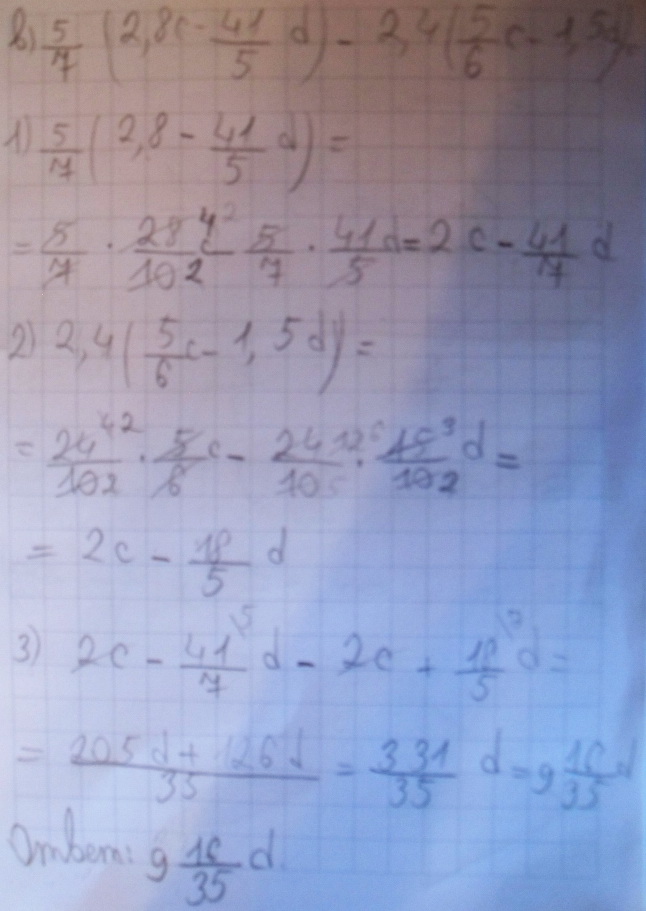 в) 5/7 (2,8c - 41/5 d) - 2,4(5/6 c - 1,5d) =
1) 5/7 (2,8 - 41/5 d) =
= 5/7 · 28/10 c - 5/7 · 41/5 d = 2c - 41/7 d
2) 2,4(5/6 c - 1,5d) =
= 24/10 · 5/6 c - 24/10 · 15/10 d =
= 2c - 18/5 d
3) 2c - 41/7 d - 2c + 18/5 d =
= 205d + 126d / 35 = 331/35 d = 9 16/35 d
Ответ: 9 16/35 d.